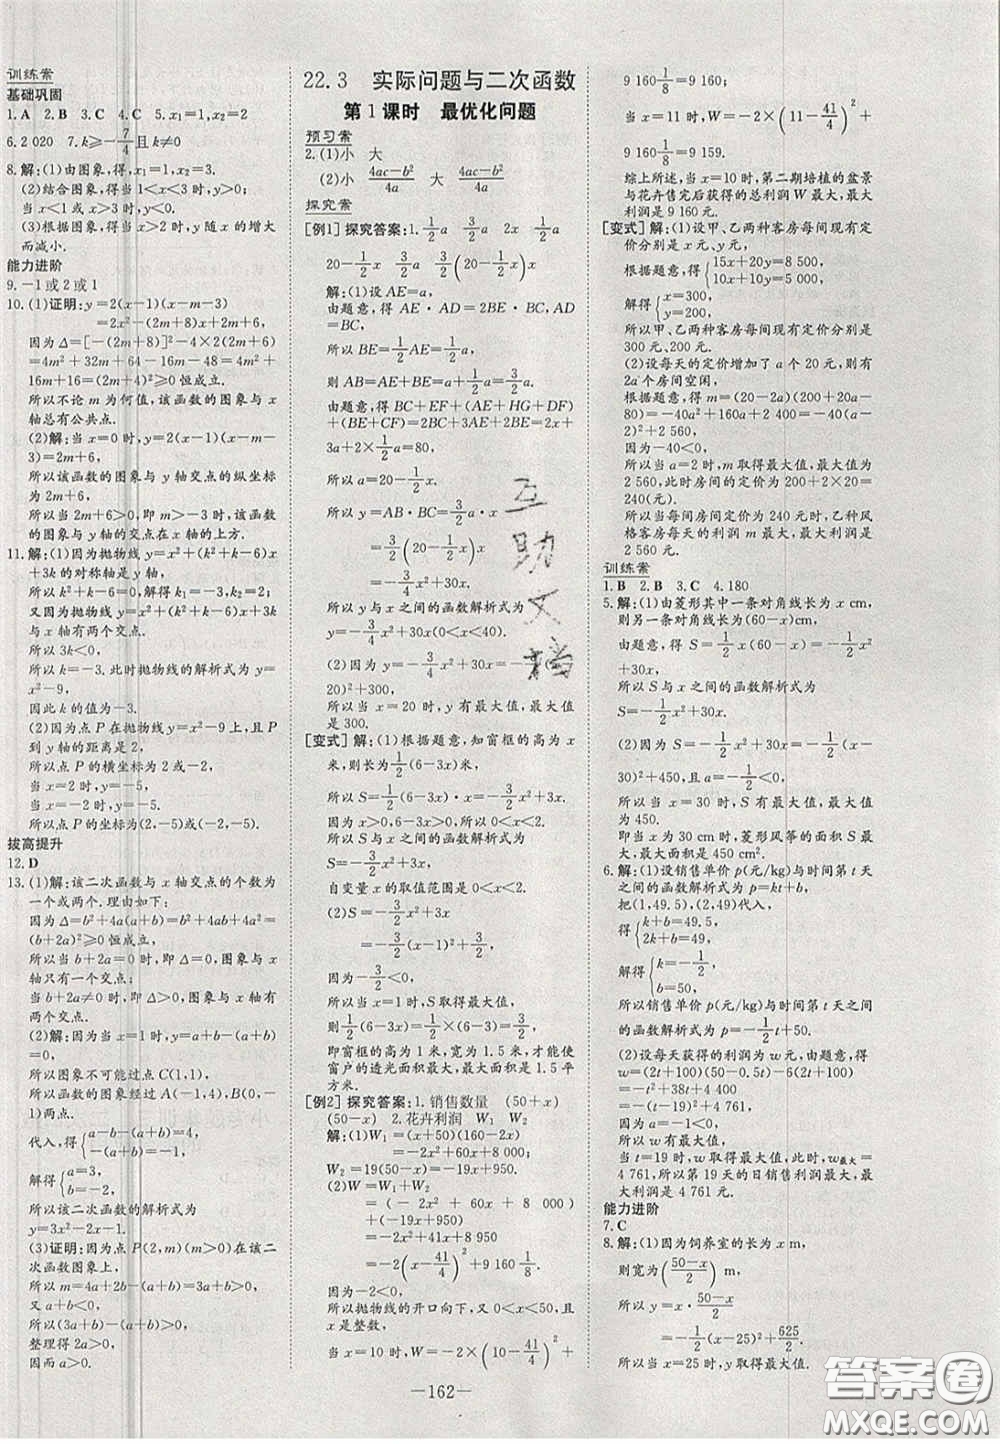 训练案
基础巩固
1.A 2.B 3.C 4.C 5.x₁=1,x₂=2
6.2 020 7.k≥-7/4且k≠0
8.解:(1)由图象,得,x₁=1,x₂=3.
(2)结合图象,得当1<x<3时,y>0;
当x<1或x>3时,y<0;
(3)根据图象,得当x>2时,y随x的增大
而减小.
能力进阶
9.-1或2或1
10.(1)证明:y=2(x-1)(x-m-3)
=2x²-(2m+8)x+2m+6,
因为Δ=[-(2m+8)]²-4×2(2m+6)
=4m²+32m+64-16m-48=4m²+
16m+16=(2m+4)²≥0恒成立.
所以不论m为何值,该函数的图象与x
轴总有公共点.
(2)解:当x=0时,y=2(x-1)(x-m-
3)=2m+6,
所以该函数的图象与y轴交点的纵坐标
为2m+6,
所以当2m+6>0,即m>-3时,该函
数的图象与y轴的交点在x轴的上方.
11.解:(1)因为抛物线y=x²+(k²+k-6)x
+3k的对称轴是y轴,
所以k²+k-6=0,解得k₁=-3,k₂=2;
又因为抛物线y=x²+(k²+k-6)x+3k
与x轴有两个交点.
所以3k<0.
所以k=-3.此时抛物线的解析式为y=
x²-9,
因此k的值为-3.
(2)因为点P在抛物线y=x²-9上,且P
到y轴的距离是2,
所以点P的横坐标为2或-2,
当x=2时,y=-5;
当x=-2时,y=-5.
所以点P的坐标为(2,-5)或(-2,-5).
拔高提升
12.D
13.(1)解:该二次函数与x轴交点的个数为
一个或两个.理由如下:
因为Δ=b²+4a(a+b)=b²+4ab+4a²=
(b+2a)²≥0恒成立,
所以当b+2a=0时,即Δ=0,图象与x
轴只有一个交点;
当b+2a≠0时,即Δ>0,图象与x轴有
两个交点.
(2)解:因为当x=1时,y=a+b-(a+b)
=0,
所以图象不可能过点C(1,1),
所以函数图象经过点A(-1,4),B(0,
-1)两点.
代入,得{a-b-(a+b)=4,
-(a+b)=-1,
解得{a=3,
b=-2,
所以该二次函数的解析式为
y=3x²-2x-1.
(3)证明:因为点P(2,m)(m>0)在该二
次函数图象上,
所以m=4a+2b-(a+b)=3a+b>0,
又a+b<0,
所以(3a+b)-(a+b)>0,
整理得2a>0,
因而a>0.
22.3 实际问题与二次函数
第1课时 最优化问题
预习案
2.(1)小 大
(2)小 (4ac-b²)/4a 大 (4ac-b²)/4a
探究案
[例1] 探究答案:1.1/2a 3/2a 2x 3/2a
20-1/2x 3/2(20-1/2x)
解:(1)设AE=a,
由题意,得AE·AD=2BE·BC,AD
=BC,
所以BE=1/2AE=1/2a,
则AB=AE+BE=a+1/2a=3/2a.
由题意,得BC+EF+(AE+HG+DF)
+(BE+CF)=2BC+3AE+2BE=2x+
3a+2×1/2a=80.
所以a=20-1/2x.
所以y=AB·BC=3/2a·x
=3/2(20-1/2x)x
=-3/4x²+30x.
所以y与x之间的函数解析式为
y=-3/4x²+30x(0<x<40).
(2)因为y=-3/4x²+30x=-3/4(x-
20)²+300,
所以当x=20时,y有最大值,最大值
是300.
[变式] 解:(1)根据题意,知窗框的高为x
米,则长为1/2(6-3x)米.
所以S=1/2(6-3x)·x=-3/2x²+3x.
因为x>0,6-3x>0,所以0<x<2.
所以S与x之间的函数解析式为
S=-3/2x²+3x,
自变量x的取值范围是0<x<2.
(2)S=-3/2x²+3x
=-3/2(x-1)²+3/2,
因为-3/2<0,
所以当x=1时,S取得最大值.
则1/2(6-3x)=1/2×(6-3)=3/2.
即窗框的高为1米,宽为1.5米,才能使
窗户的透光面积最大,最大面积是1.5平
方米.
[例2] 探究答案:1.销售数量 (50+x)
(50-x) 2.花卉利润 W₁ W₂
解:(1)W₁=(x+50)(160-2x)
=-2x²+60x+8 000,
W₂=19(50-x)=-19x+950.
(2)W=W₁+W₂
=(-2x²+60x+8 000)
+(-19x+950)
=-2(x-41/4)²+9 160 1/8.
因为-2<0,
所以抛物线的开口向下,又0<x<50,且x
是整数,
所以当x=10时,W=-2×(10-41/4)²+
9 160 1/8=9 160;
当x=11时,W=-2×(11-41/4)²+
9 160 1/8=9 159.
综上所述,当x=10时,第二期培植的盆景
与花卉售完后获得的总利润W最大,最大
利润是9 160元.
[变式] 解:(1)设甲、乙两种客房每间现有定
价分别是x元、y元,
根据题意,得{15x+20y=8 500,
10x+10y=5 000,
解得{x=300,
y=200,
所以甲、乙两种客房每间现有定价分别是
300元、200元.
(2)设每天的定价增加了a个20元,则有
2a个房间空闲,
根据题意,得m=(20-2a)(200+20a-
80)=-40a²+160a+2 400=-40(a-
2)²+2 560,
因为-40<0,
所以当a=2时,m取得最大值,最大值为
2 560,此时房间的定价为200+2×20=
240(元).
所以当每间房间定价为240元时,乙种风格
客房每天的利润m最大,最大利润是
2 560元.
训练案
1.B 2.B 3.C 4.180
5.解:(1)由菱形其中一条对角线长为x cm,
则另一条对角线长为(60-x)cm,
由题意,得S=1/2x(60-x)=-1/2x²
+30x.
所以S与x之间的函数解析式为
S=-1/2x²+30x.
(2)因为S=-1/2x²+30x=-1/2(x-
30)²+450,且-1/2<0,
所以当x=30时,S有最大值,最大值
为450.
即当x为30 cm时,菱形风筝的面积S最
大,最大面积是450 cm².
6.解:(1)设销售单价p(元/kg)与时间第t天
之间的函数解析式为p=kt+b,
把(1,49.5),(2,49)代入,
得{k+b=49.5,
2k+b=49,
解得{k=-1/2,
b=50,
所以销售单价p(元/kg)与时间第t天之间
的函数解析式为p=-1/2t+50.
(2)设每天获得的利润为w元,由题意,得
w=(2t+100)(50-0.5t)-6(2t+100)
=-t²+38t+4 400
=-(t-19)²+4 761.
因为a=-1<0,
所以w有最大值.
当t=19时,w取得最大值,此时,w最大=
4 761,所以第19天的日销售利润最大,最大
利润是4 761元.
能力进阶
7.C
8.解:(1)因为饲养室的长为x m,
则宽为((50-x)/2) m,
所以y=x·(50-x)/2
=-1/2(x-25)²+625/2,
所以当x=25时,y最大.
—162—
互助文档
答案圈
MXQE.COM